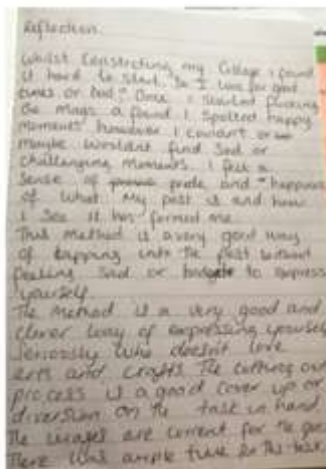 Reflection.
Whilst Constructing my Collage I found
it hard to start. Do I look for good
times or bad? Once I started flicking
the mags I found I spotted happy
moments however I couldn't or
maybe wouldn't find sad or
challenging moments. I felt a
sense of pride and happiness
of what my past is and how
I see it has formed me.
This method is a very good way
of tapping into the past without
feeling sad or to express
yourself.
The method is a very good and
clever way of expressing yourself
seriously who doesn't love
arts and crafts. The cutting out
process is a good cover up or
diversion on the task in hand.
The images are current for the
There was ample time for the task.